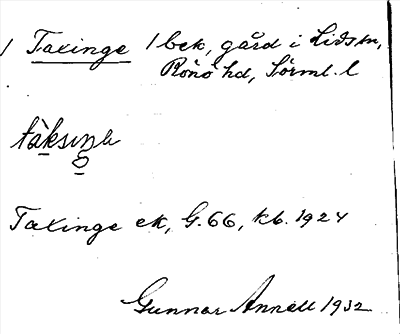 1 Taxinge 1 bek, gård i Lids sn,
Rönö hd, Sörml. l
Taxinge ek, G. 66, kb. 1924
Gunnar Annell 1932